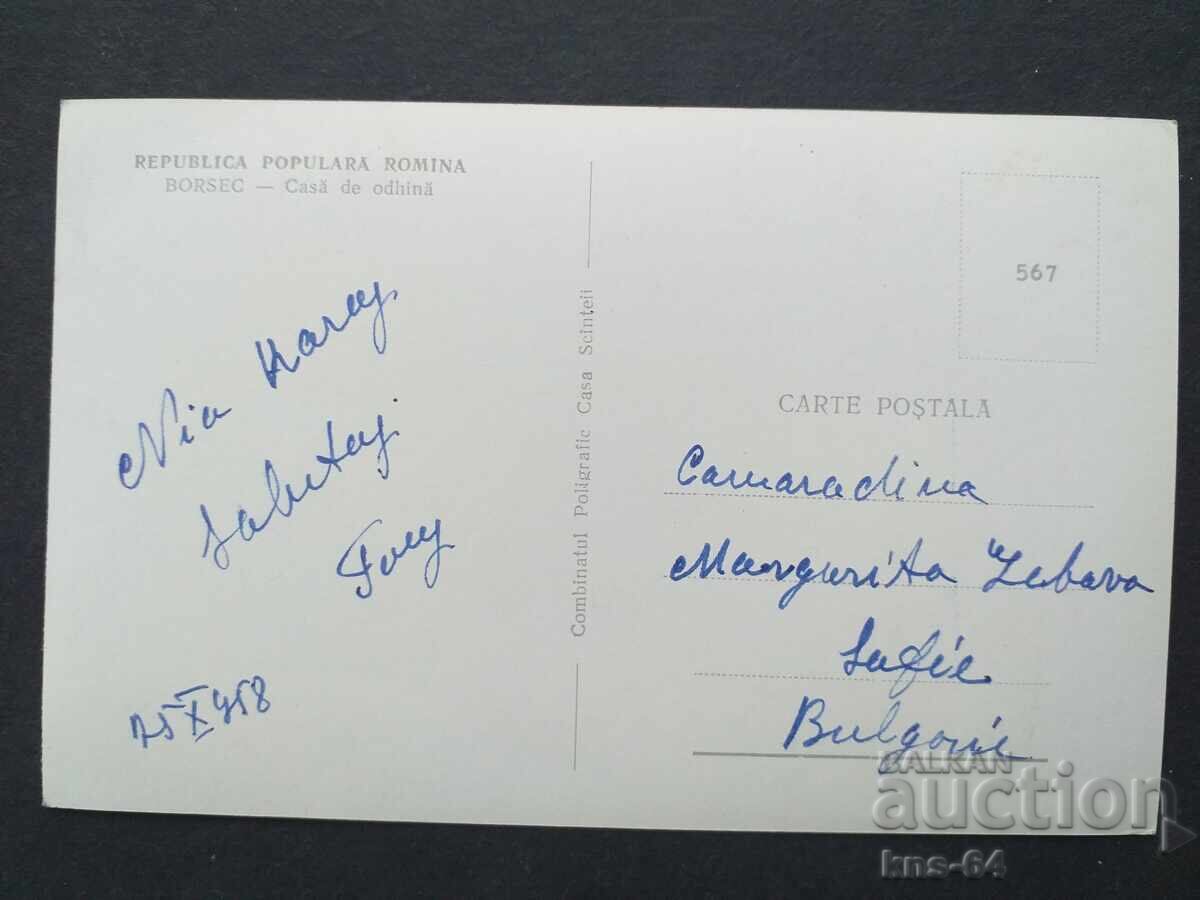 REPUBLICA POPULARĂ ROMINA
BORSEC — Casă de odhină
Salutaj
15 X 958
Combinatul Poligrafic Casa Scînteii
567
CARTE POȘTALĂ
Camaradina
Margarita Zebava
Sofie
Bulgarie
BALKAN
auction
kns-64